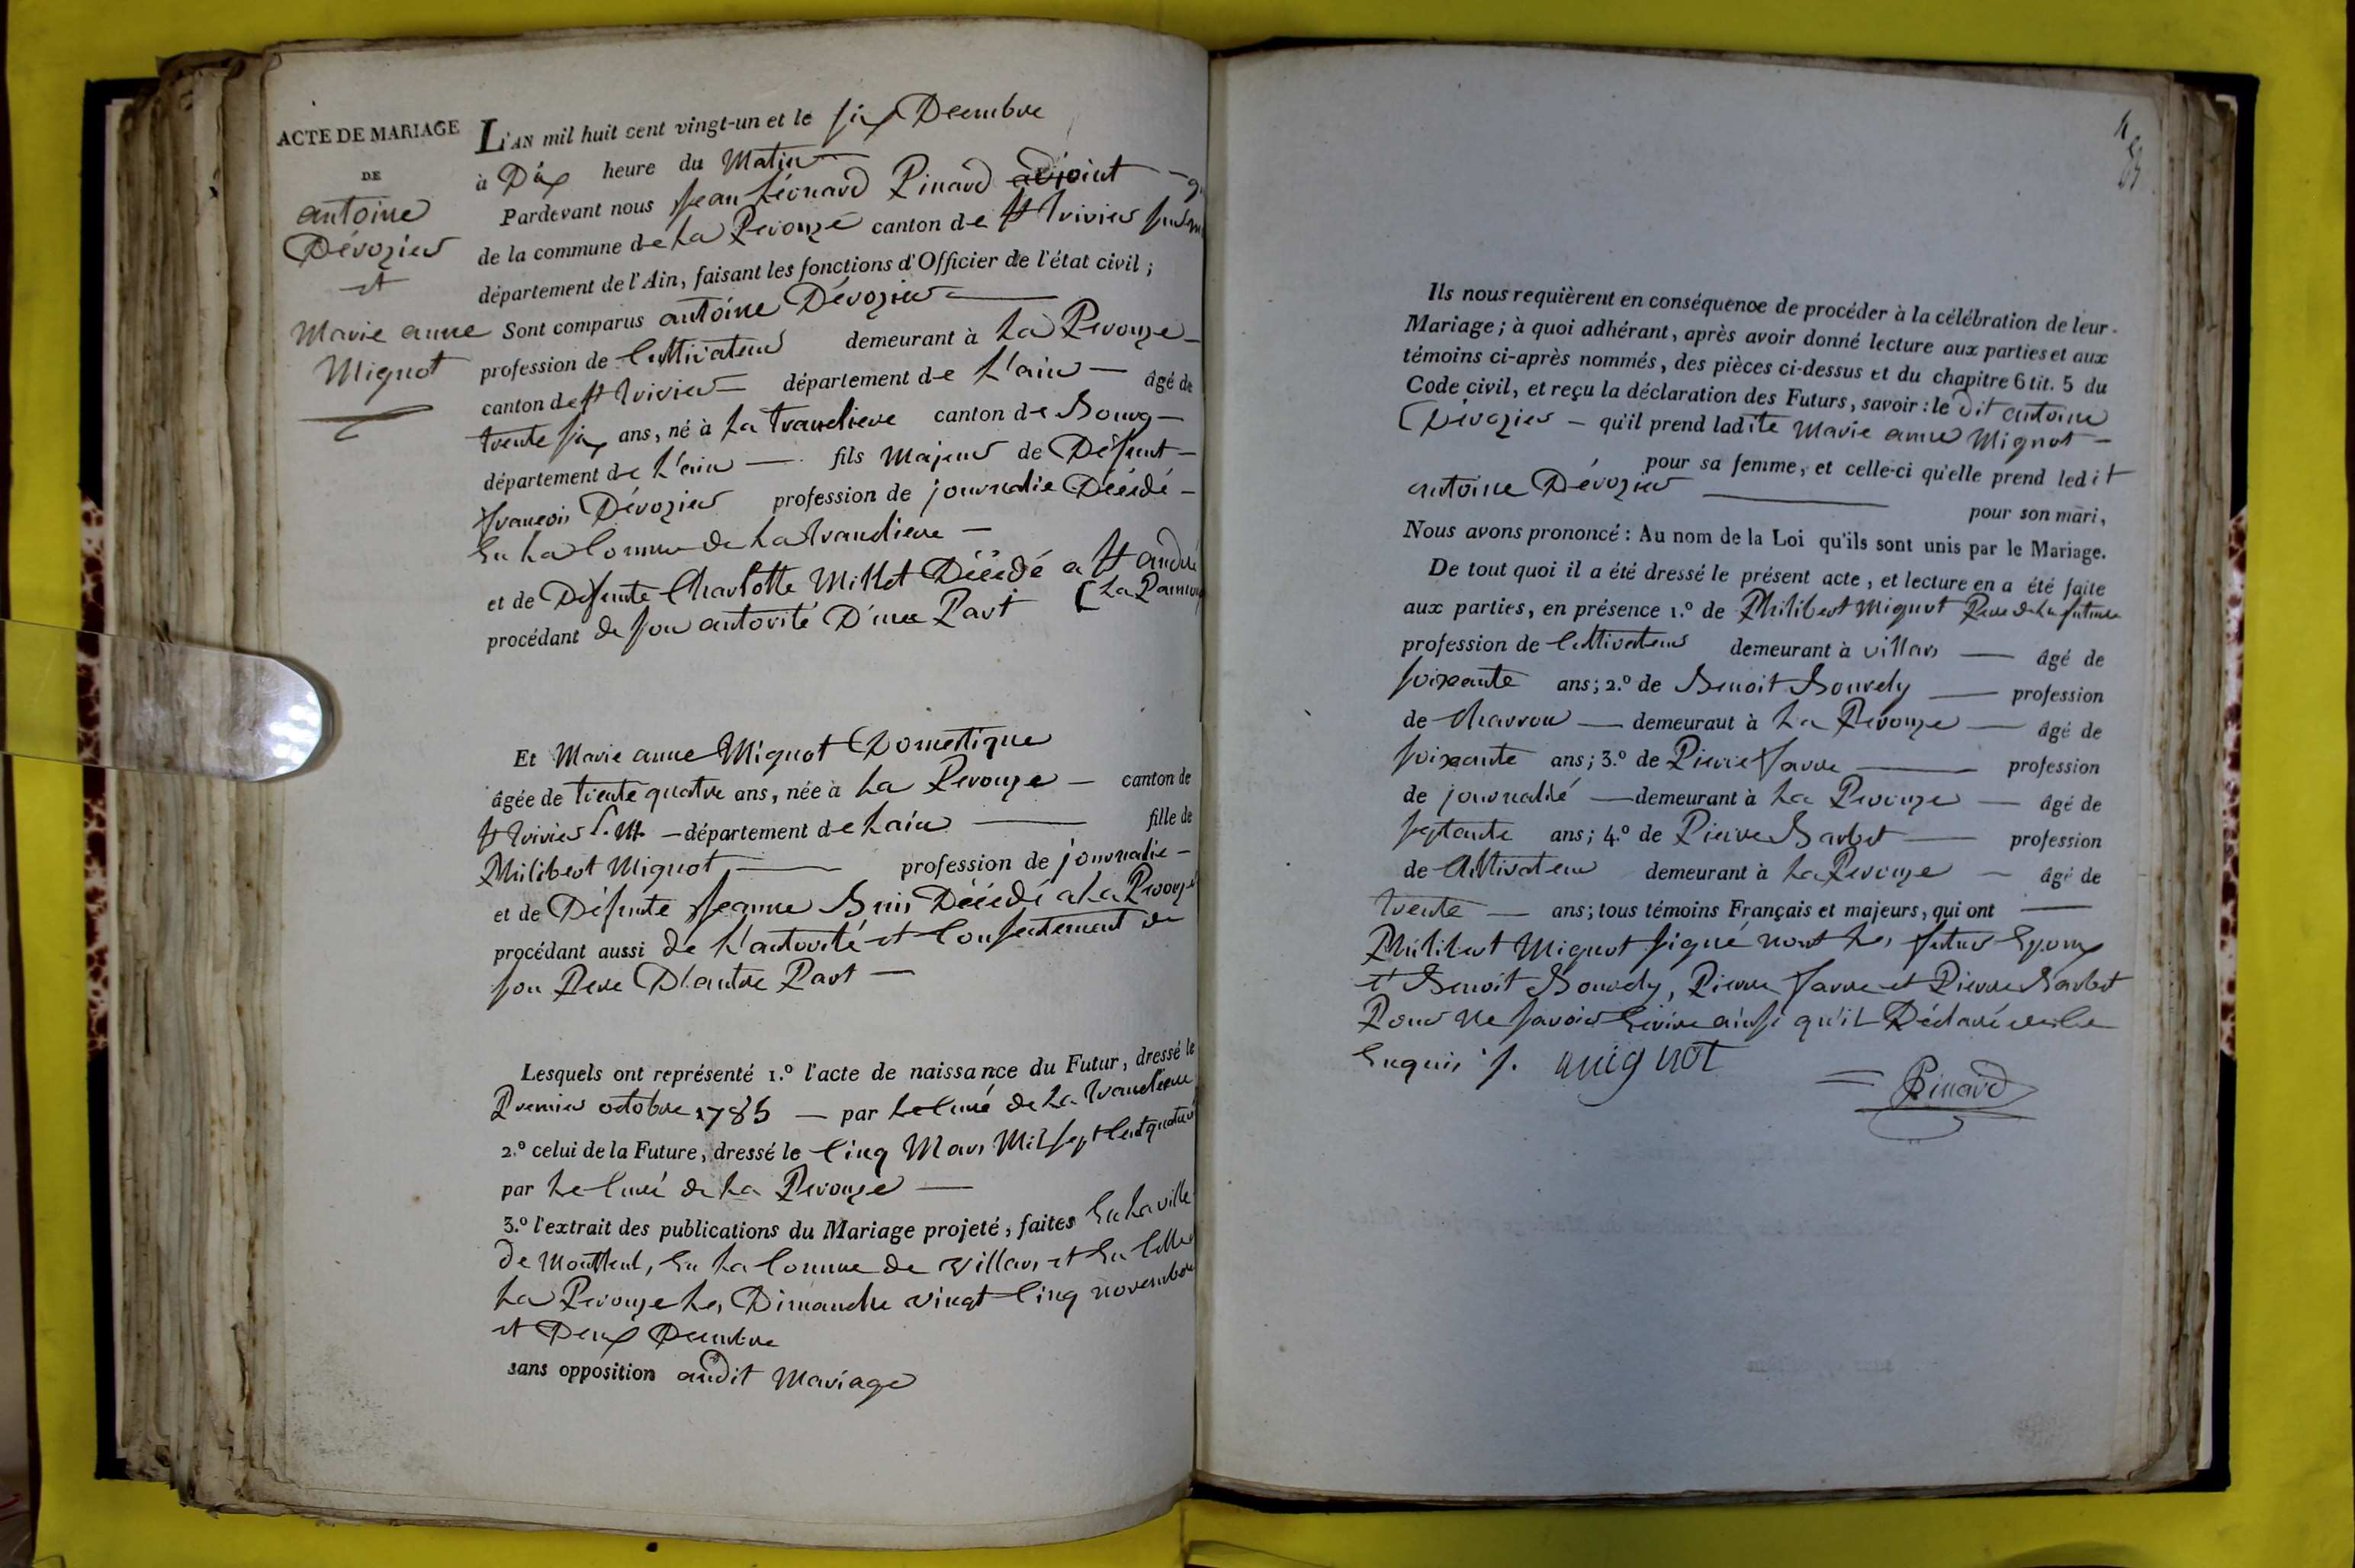 ACTE DE MARIAGE
DE
antoine
Dévozier
et
Marie anne
Mignot
L'AN mil huit cent vingt-un et le six Decembre
à Dix heure du Matin
Pardevant nous Jean Léonard Pinard adjoint
de la commune de La Perouze canton de St trivier
département de l'Ain, faisant les fonctions d'Officier de l'état civil ;
Sont comparus antoine Dévozier
profession de Cultivateur demeurant à La Perouze
canton de St trivier département de L'ain âgé de
trente six ans, né à La trancliere canton de Bourg
département de L'ain fils Majeur de Défunt
francois Dévozier profession de journalie Décédé
En La Comune de La trancliere
et de Défunte Charlotte Millet Décédé a St andré
procédant de son autorité D'une Part
Et Marie anne Mignot Domestique
âgée de trente quatre ans, née à La Perouze canton de
St trivier S. M. département de Lain fille de
Philibert Mignot profession de journalie
et de Défunte Jeanne Décédé a La Perouze
procédant aussi de L'autorité et Consentement de
son Pere D'autre Part
Lesquels ont représenté 1.° l'acte de naissance du Futur, dressé le
Premier octobre 1785 par Le Curé de La trancliere
2.° celui de la Future, dressé le Cinq Mars Mil sept Cent quatre
par Le Curé de La Perouze
3.° l'extrait des publications du Mariage projeté, faites En La ville
de Montluel, En La Comune de villars et En Celle
La Perouze Les Dimanche vingt Cinq novembre
et Deux Decembre
sans opposition audit Mariage
Ils nous requièrent en conséquence de procéder à la célébration de leur
Mariage ; à quoi adhérant, après avoir donné lecture aux parties et aux
témoins ci-après nommés, des pièces ci-dessus et du chapitre 6 tit. 5 du
Code civil, et reçu la déclaration des Futurs, savoir : le dit antoine
Dévozier qu'il prend ladite Marie anne Mignot
pour sa femme, et celle-ci qu'elle prend ledit
antoine Dévozier
pour son mari,
Nous avons prononcé : Au nom de la Loi qu'ils sont unis par le Mariage.
De tout quoi il a été dressé le présent acte, et lecture en a été faite
aux parties, en présence 1.° de Philibert Mignot Pere de La future
profession de Cultivateur demeurant à villars âgé de
soixante ans ; 2.° de Benoit Bourdy profession
de Charron demeurant à La Perouze âgé de
soixante ans ; 3.° de Pierre favre profession
de journalié demeurant à La Perouze âgé de
septante ans ; 4.° de Pierre Barbet profession
de Cultivateur demeurant à La Perouze âgé de
trente ans ; tous témoins Français et majeurs, qui ont
Philibert Mignot signé nont Les futur Epoux
et Benoit Bourdy, Pierre favre et Pierre Barbet
Pour ne savoir Ecrire ainsi qu'il Déclaré
Enquis s. mignot
Pinard